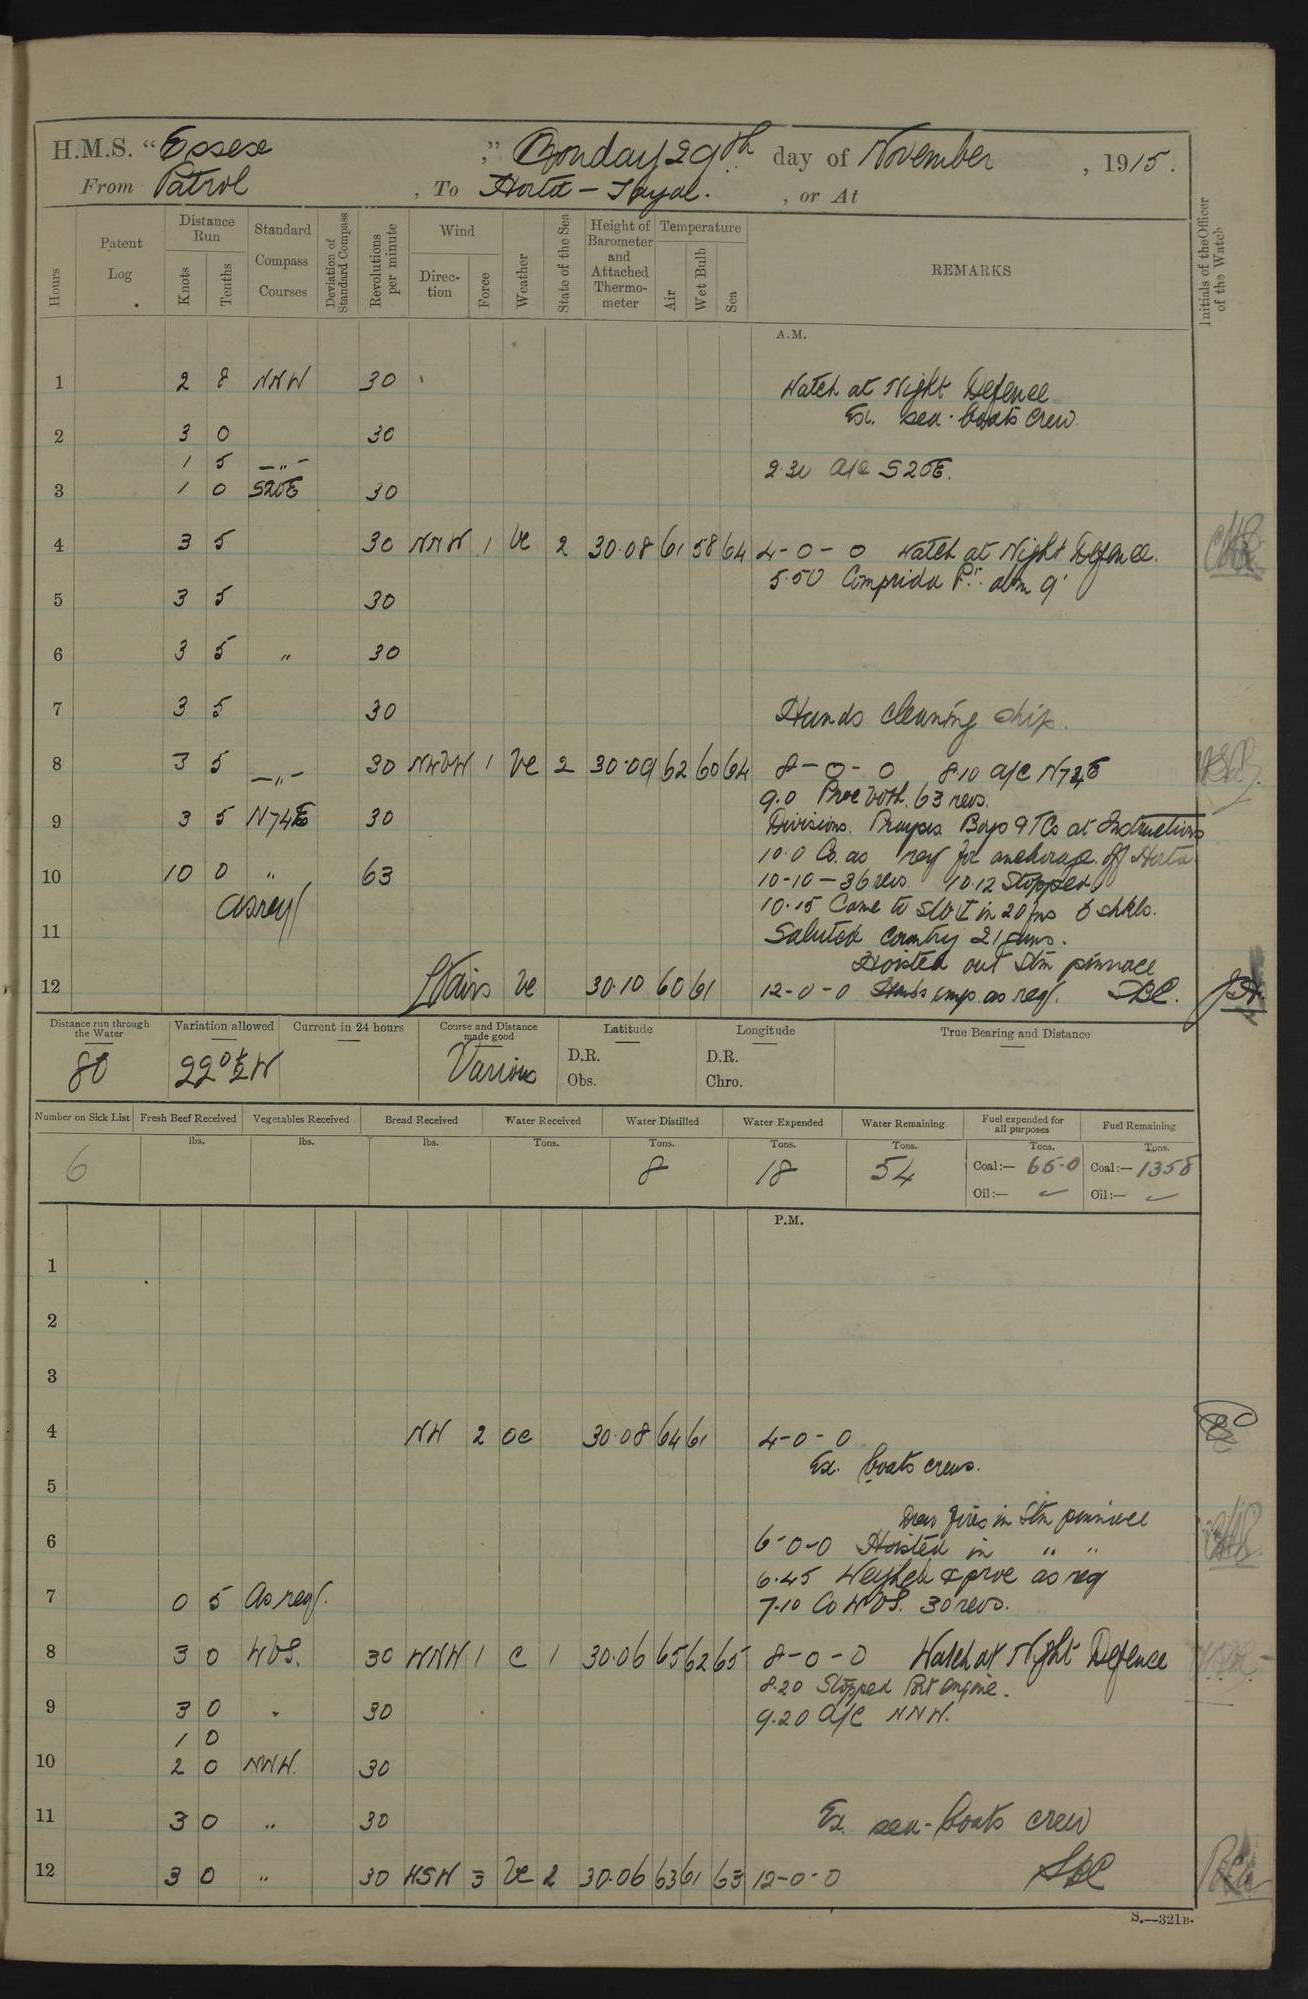 H.M.S. "Essex ," Monday 29th day of November , 1915.
From Patrol , To Horta - Fayal. , or At
Hours
Patent Log
Distance Run
Knots
Tenths
Standard Compass Courses
Deviation of Standard Compass
Revolutions per minute
Wind
Direction
Force
Weather
State of the Sea
Height of Barometer and Attached Thermometer
Temperature
Air
Wet Bulb
Sea
REMARKS
Initials of the Officer of the Watch
A.M.
1 2 8 NNW 30 Watch at Night Defence
Ex. sea-boats crew.
2 3 0 30
1 5 -„- 2.30 A/c S20E.
3 1 0 S20E 30
4 3 5 30 NNW 1 bc 2 30.08 61 58 64 4-0-0 Watch at Night Defence.
5.50 Comprida Pt. abm 9'
5 3 5 30
6 3 5 „ 30
7 3 5 30 Hands cleaning ship.
8 3 5 -„- 30 NWbW 1 bc 2 30.09 62 60 64 8-0-0 8.10 A/C N74E
9.0 Proc both 63 revs.
9 3 5 N74E 30 Divisions. Prayers. Boys & TCs at Instructions
10.0 Co. as req for anchorage off Horta
10 10 0 „ 63 10-10-36 revs 10.12 Stopped
as req 10.15 Came to in 20 fms 5 shkls.
11 Saluted Country 21 guns.
Hoisted out Stm pinnace
12 bc 30.10 60 61 12-0-0 Hands emp. as req.
Distance run through the Water
80
Variation allowed
22°½W
Current in 24 hours
Course and Distance made good
Various
Latitude
D.R.
Obs.
Longitude
D.R.
Chro.
True Bearing and Distance
Number on Sick List Fresh Beef Received Vegetables Received Bread Received Water Received Water Distilled Water Expended Water Remaining Fuel expended for all purposes Fuel Remaining
lbs. lbs. lbs. Tons. Tons. Tons. Tons. Tons. Tons.
6 8 18 54 Coal:— 65-0 Coal:— 1358
Oil:— Oil:—
P.M.
1
2
3
4 NW 2 oc 30.08 64 61 4-0-0
Ex. boats crews.
5
Drew fires in Stm pinnace
6 6-0-0 Hoisted in „ „
6.45 Weighed & proc as req
7 0 5 As req. 7.10 Co WbS. 30 revs.
8 3 0 WbS. 30 WNW 1 c 1 30.06 65 62 65 8-0-0 Watch at Night Defence
8.20 Stopped Port engine.
9 3 0 „ 30 9.20 A/C NNW.
1 0
10 2 0 NNW. 30
11 3 0 „ 30 Ex. sea-boats crew
12 3 0 „ 30 WSW 3 bc 2 30.06 63 61 63 12-0-0
S.—321B.